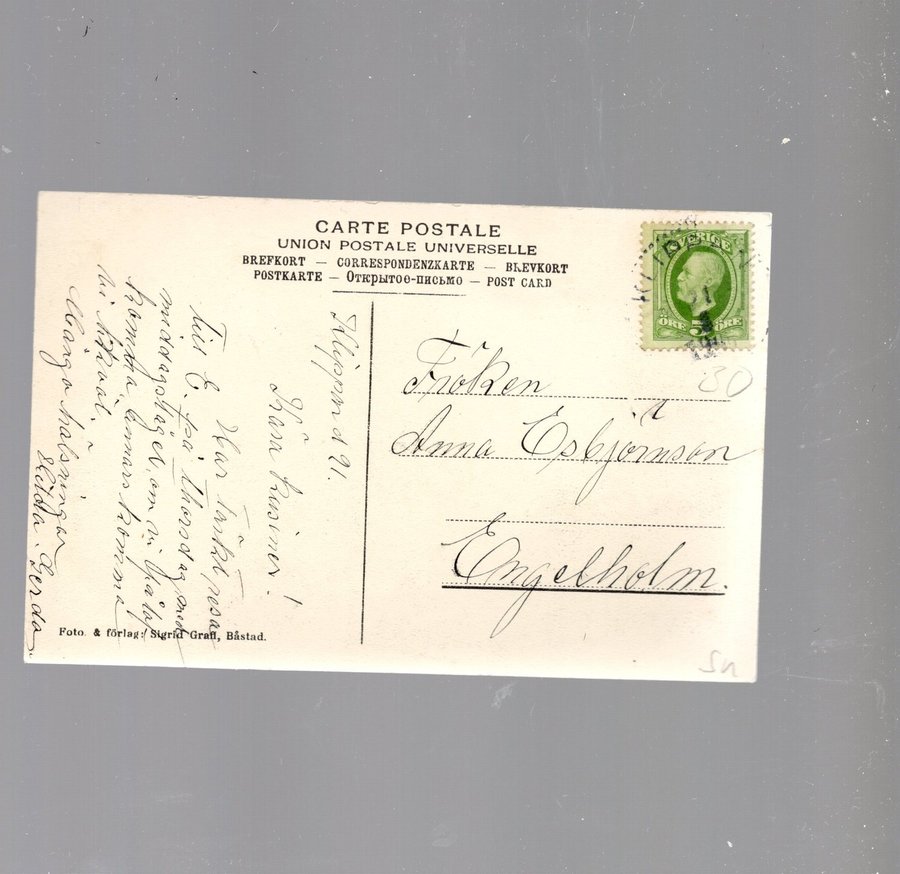 CARTE POSTALE
UNION POSTALE UNIVERSELLE
BREFKORT — CORRESPONDENZKARTE — BREVKORT
POSTKARTE — Открытое-письмо — POST CARD
SVERIGE
ÖRE 5 ÖRE
21
30
Fröken
Anna Esbjörnson
Engelholm.
Klippan d 21.
Kära kusiner!
Har tänkt resa
till E. på Thorsdag med
middagståget, om ni
komma annars komma
vi
Många hälsningar
Gerda
Foto. & förlag: Sigrid Graff, Båstad.